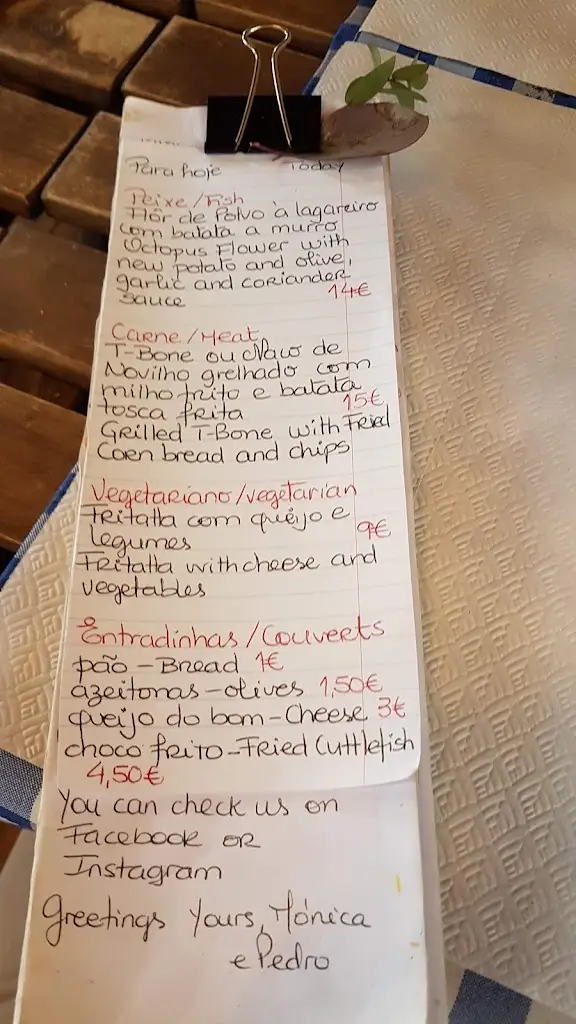 Para hoje Today
Peixe/Fish
Flôr de Polvo à lagareiro
com batata a murro
Octopus Flower with
new potato and olive,
garlic and coriander
sauce 14€
Carne/Meat
T-Bone ou Naco de
Novilho grelhado com
milho frito e batata
tosca frita 15€
Grilled T-Bone with Fried
Corn bread and chips
Vegetariano/vegetarian
Fritatta com queijo e
legumes 9€
Fritatta with cheese and
vegetables
Entradinhas/Couverts
pão - Bread 1€
azeitonas - olives 1,50€
queijo do bom - Cheese 3€
choco frito - Fried Cuttlefish
4,50€
You can check us on
Facebook OR
Instagram
Greetings Yours, Mónica
e Pedro